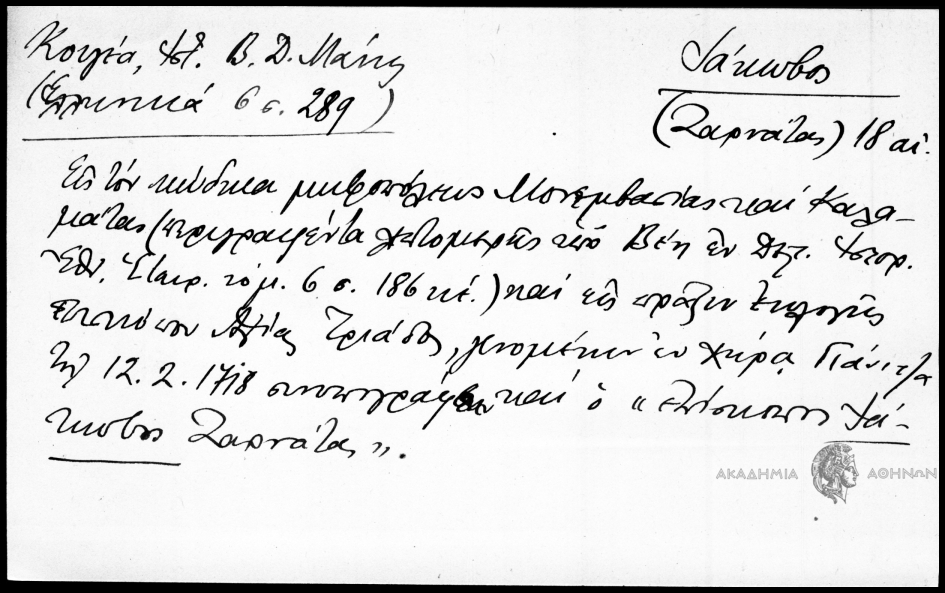 Κουγέα, Ἱστ. Β. Δ. Μάνης
(Ἑλληνικά 6 σ. 289)
Ἰάκωβος
(Ζαρνάτας) 18 αἰ.
Εἰς τὸν κώδικα μητροπόλεως Μονεμβασίας καὶ Καλα-
μάτας (περιγραφέντα λεπτομερῶς ὑπὸ Βέη ἐν Δελτ. Ἱστορ.
Ἐθν. Ἑταιρ. τόμ. 6 σ. 186 κἑ.) καὶ εἰς πρᾶξιν ἐκλογῆς
ἐπισκόπου Ἁγίας Τριάδος, γενομένην ἐν χώρᾳ Γιάνιτζα
τῇ 12.2.1718 συνυπογράφει καὶ ὁ «ἐπίσκοπος Ἰά-
κωβος Ζαρνάτας».
ΑΚΑΔΗΜΙΑ ΑΘΗΝΩΝ